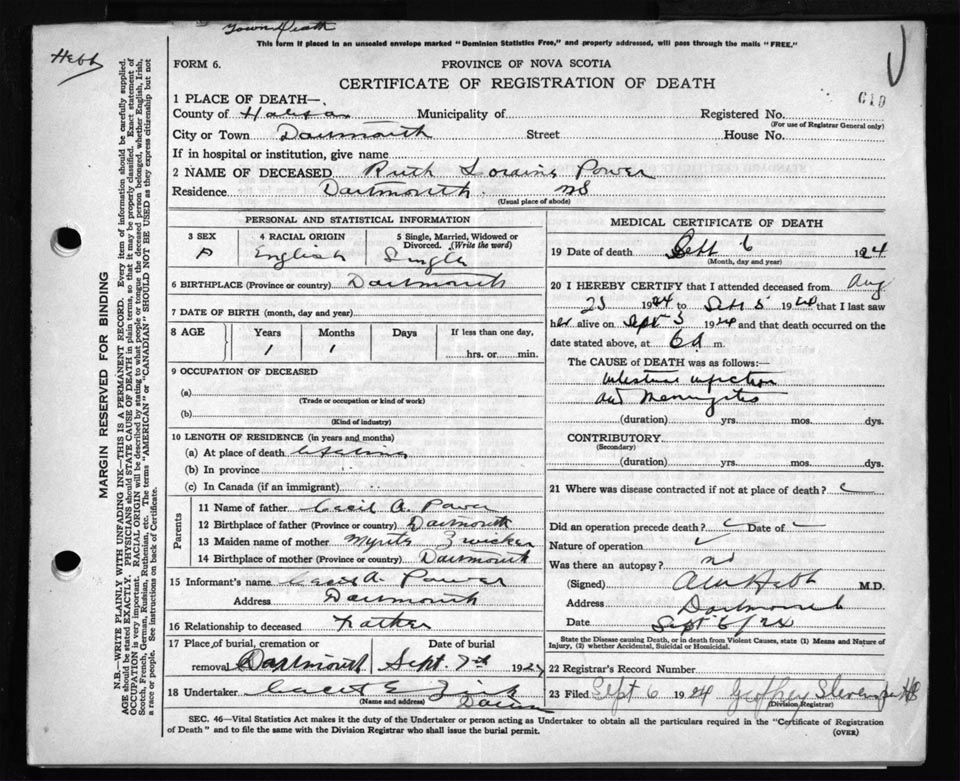 Town Death
This form if placed in an unsealed envelope marked "Dominion Statistics Free," and properly addressed, will pass through the mails "FREE."
Hebb
FORM 6.
PROVINCE OF NOVA SCOTIA
CERTIFICATE OF REGISTRATION OF DEATH
610
1 PLACE OF DEATH—
County of Halifax Municipality of Registered No.
(For use of Registrar General only)
City or Town Dartmouth Street House No.
If in hospital or institution, give name
2 NAME OF DECEASED Ruth Loraine Power
Residence Dartmouth. NS
(Usual place of abode)
PERSONAL AND STATISTICAL INFORMATION
3 SEX 4 RACIAL ORIGIN 5 Single, Married, Widowed or Divorced. (Write the word)
F English Single
6 BIRTHPLACE (Province or country) Dartmouth
7 DATE OF BIRTH (month, day and year)
8 AGE Years Months Days If less than one day,
1 1 hrs. or min.
9 OCCUPATION OF DECEASED
(a)
(Trade or occupation or kind of work)
(b)
(Kind of industry)
10 LENGTH OF RESIDENCE (in years and months)
(a) At place of death Lifetime
(b) In province
(c) In Canada (if an immigrant)
Parents
11 Name of father Cecil A. Power
12 Birthplace of father (Province or country) Dartmouth
13 Maiden name of mother Myrtle Zwicker
14 Birthplace of mother (Province or country) Dartmouth
15 Informant's name Cecil A. Power
Address Dartmouth
16 Relationship to deceased Father
17 Place of burial, cremation or Date of burial
removal Dartmouth Sept 7th 1924
18 Undertaker Zink
(Name and address)
MEDICAL CERTIFICATE OF DEATH
19 Date of death Sept 6 1924
(Month, day and year)
20 I HEREBY CERTIFY that I attended deceased from Aug
23 1924 to Sept 5 1924 that I last saw
her alive on Sept 5 1924 and that death occurred on
date stated above, at 6 a. m.
The CAUSE of DEATH was as follows:—
Intestinal infection
and Meningitis
(duration) yrs. mos. dys.
CONTRIBUTORY
(Secondary)
(duration) yrs. mos. dys.
21 Where was disease contracted if not at place of death?
Did an operation precede death? Date of
Nature of operation
Was there an autopsy? no
(Signed) Hebb M.D.
Address Dartmouth
Date Sept 6/24
State the Disease causing Death, or in death from Violent Causes, state (1) Means and Nature of
Injury, (2) whether Accidental, Suicidal or Homicidal.
22 Registrar's Record Number
23 Filed Sept 6 1924 Geoffrey Stevens
(Division Registrar)
SEC. 46—Vital Statistics Act makes it the duty of the Undertaker or person acting as Undertaker to obtain all the particulars required in the "Certificate of Registration
of Death" and to file the same with the Division Registrar who shall issue the burial permit.
(OVER)
MARGIN RESERVED FOR BINDING
N.B.—WRITE PLAINLY WITH UNFADING INK—THIS IS A PERMANENT RECORD. Every item of information should be carefully supplied.
AGE should be stated EXACTLY. PHYSICIANS should STATE CAUSE OF DEATH in plain terms, so that it may be properly classified. Exact statement of
OCCUPATION is very important. RACIAL ORIGIN will be described by stating to what people or tongue the deceased person belonged, whether English, Irish,
Scotch, French, German, Russian, Ruthenian, etc. The terms "AMERICAN" or "CANADIAN" SHOULD NOT BE USED as they express citizenship but not
a race or people. See instructions on back of Certificate.